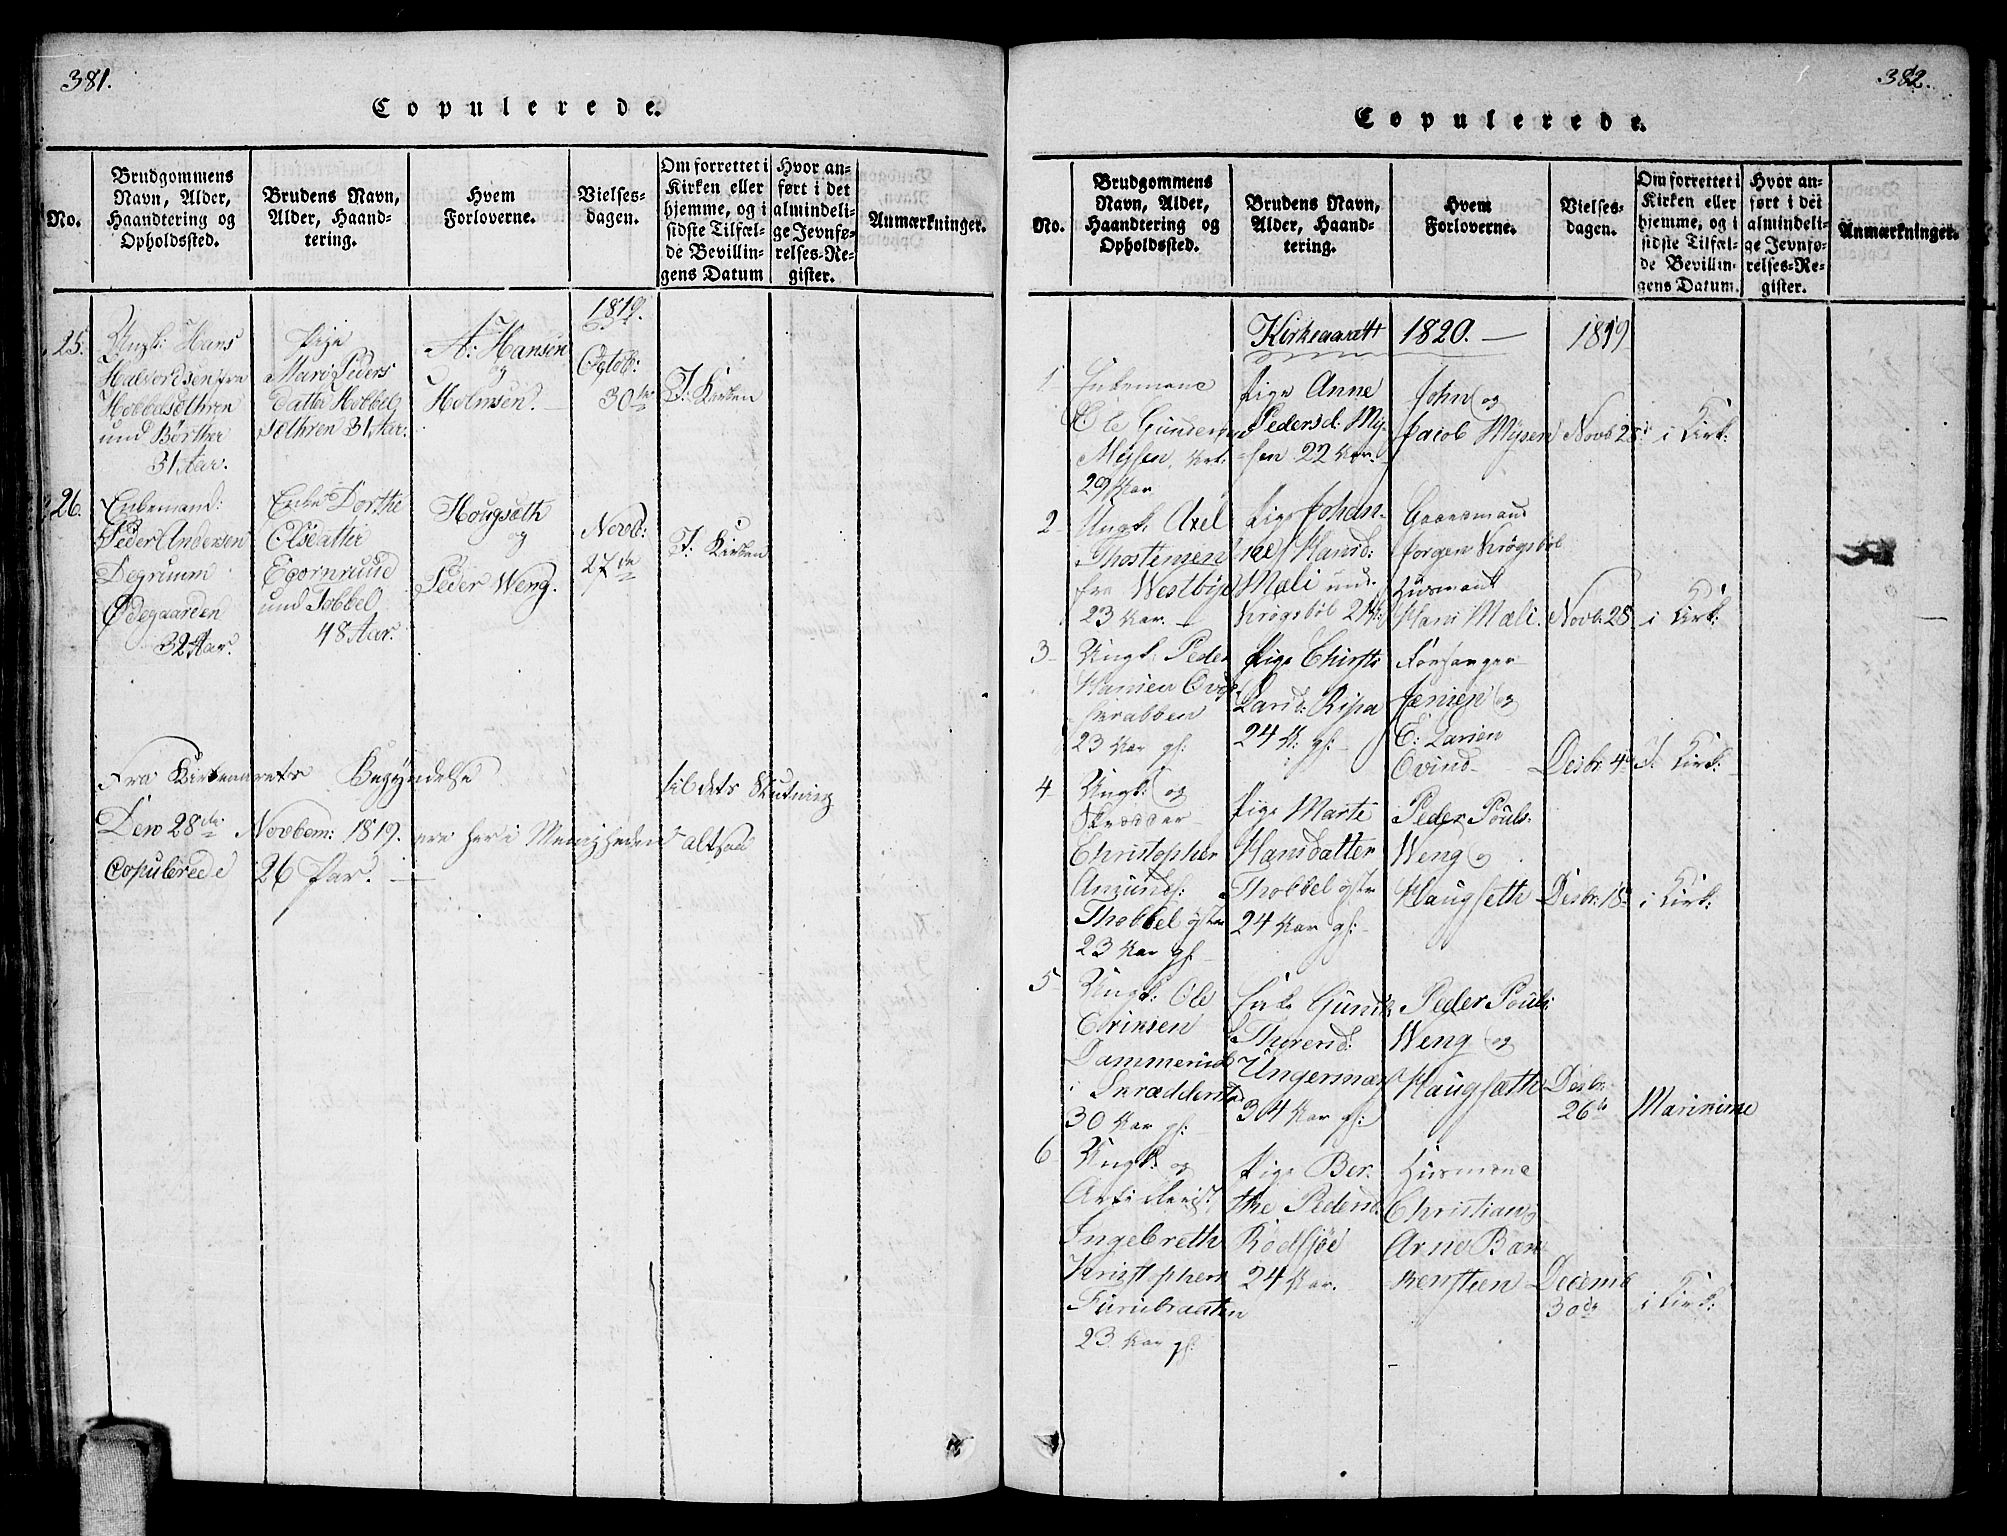 381.
Copulerede.
No.
Brudgommens
Navn, Alder,
Haandtering og
Opholdssted.
Brudens Navn,
Alder, Haand-
tering.
Hvem
Forloverne.
Vielses-
dagen.
Om forrettet i
Kirken eller
hjemme, og i
sidste Tilfæl-
de Bevillin-
gens Datum
Hvor an-
ført i det
almindeli-
ge Jevnfø-
relses-Re-
gister.
Anmærkninger.
1819.
25.
Ungk: Hans
Halvordsen fra
Hobbelsøthren
und Børther
31 Aar.
Pige
Mari Peders
Datter Hobbel
søthren 31 Aar.
A: Hansen
og
Holmsen.
Octob:
30te
I: Kirken
26.
Enkemand:
Peder Andersen
Degrum
Ødegaarden
32 Aar.
Enke Dorthe
Olsdatter
Egornruud
und Tobbel
48 Aar.
Hougsæth
og
Peder Weng.
Novb:
27de
I: Kirken
Fra Kirkeaarets Begyndelse til dets Slutning
Den 28de Novbem: 1819. ere her i Menigheden altsaa
Copulerede 26 Par.
382.
Copulerede.
No.
Brudgommens
Navn, Alder,
Haandtering og
Opholdssted.
Brudens Navn,
Alder, Haand-
tering.
Hvem
Forloverne.
Vielses-
dagen.
Om forrettet i
Kirken eller
hjemme, og i
sidste Tilfæl-
de Bevillin-
gens Datum.
Hvor an-
ført i det
almindeli-
ge Jevnfø-
relses-Re-
gister.
Anmærkninger.
Kirkeaaret 1820. — 1819
1
Enkemand
Ole Gundersen
Myssen,
29 Aar
Pige Anne
Pedersd: My-
sen 22 Aar.
John og
Jacob Mysen
Novb 28
i Kirk:
2
Ungk: Axel
Thostensen
fra Westbye
23 Aar.
Pige Johan-
ne Hansd:
Mæli und.
Krogsbøl 21
Gaardmand
Jørgen Krogsbøl
Husmand
Hans Mæli.
Novb. 28
i Kirk:
3
Ungk: Peder
Hansen
skrabben
23 Aar gl:
Pige Chirsti
Larsd: Ripa
24 A: gl:
Forsanger
Jensen og
E: Larsen
Ovind
Desbr 4d
I: Kirk:
4
Ungk: og
Skrædder
Christopher
Amunds:
Thobbel østre
23 Aar gl:
Pige Marte
Hansdatter
Thobbel østre
24 Aar gl:
Peder Pouls:
Weng og
Haugseth
Desbr: 18
i Kirk:
5
Ungk: Ole
Eriksen
Dammerud
i Skræddersta
30 Aar gl:
Enke Gunild
Thoresd:
Ungermar
34 Aar gl:
Peder Pouls:
Weng og
Haugsæth
Desbr:
26de
Marikirke
6
Ungk: og
Artillerist
Ingebreth
Kristophers
Furubraaten
23 Aar gl:
Pige Ber-
the Pedersd.
Rødsjøe
24 Aar.
Husmand
Christian og
Arne Bam-
kerstien
Decemb
30de
i Kirk: